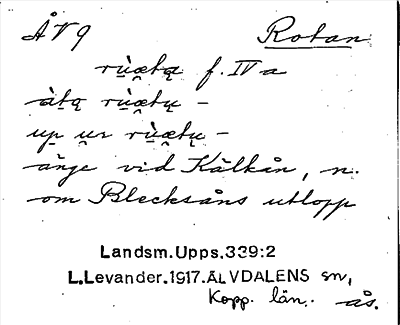 ÅVq Rotan
rù̀æ̯tą f. IV a
ȧ̀tą rù̀æ̯tų –
up ur rù̀æ̯tų –
änge vid Kälkån, n.
om Blecksåns utlopp
Landsm.Upps.339:2
L.Levander.1917.ÄLVDALENS sn,
Kopp. län. ås.